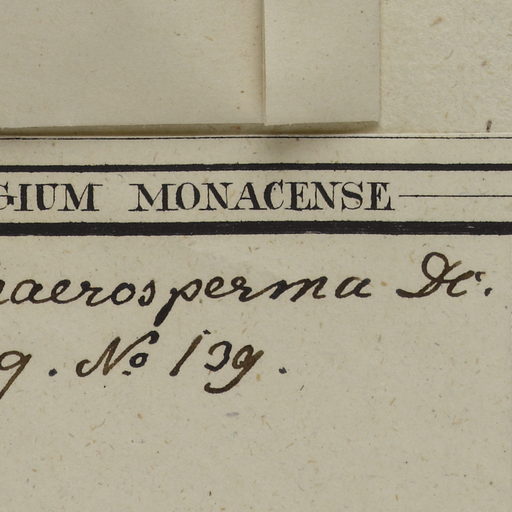 GIUM MONACENSE
haerosperma DC.
9. No 139.